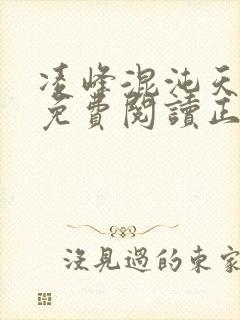 凌峰混沌天
免費閱讀正
沒見過的東家